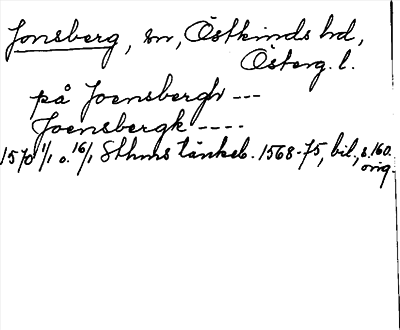 Jonsberg, sn, Östkinds hd,
Österg. l.
på Joensbergh ---
Joensbergk ----
1570 1/1 o. 16/1 Sthms tänkeb. 1568-75, bil., s. 160.
orig.